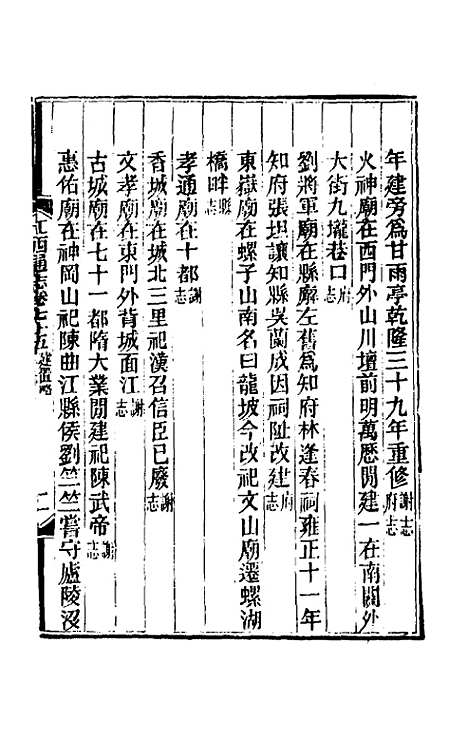 年建旁爲甘雨亭乾隆三十九年重修謝志府志
火神廟在西門外山川壇前明萬歷閒建一在南關外
大街九壠巷口府志
劉將軍廟在縣廨左舊爲知府林逢春祠雍正十一年
知府張坦讓知縣吳蘭成因祠阯改建府志
東嶽廟在螺子山南名曰龍坡今改祀文山廟遷螺湖
橋畔縣志
孝通廟在十都謝志
香城廟在城北三里祀漢召信臣已廢謝志
文孝廟在東門外背城面江謝志
古城廟在七十一都隋大業閒建祀陳武帝謝志
惠佑廟在神岡山祀陳曲江縣侯劉竺竺嘗守廬陵沒
江西通志卷七十五 建置略 二